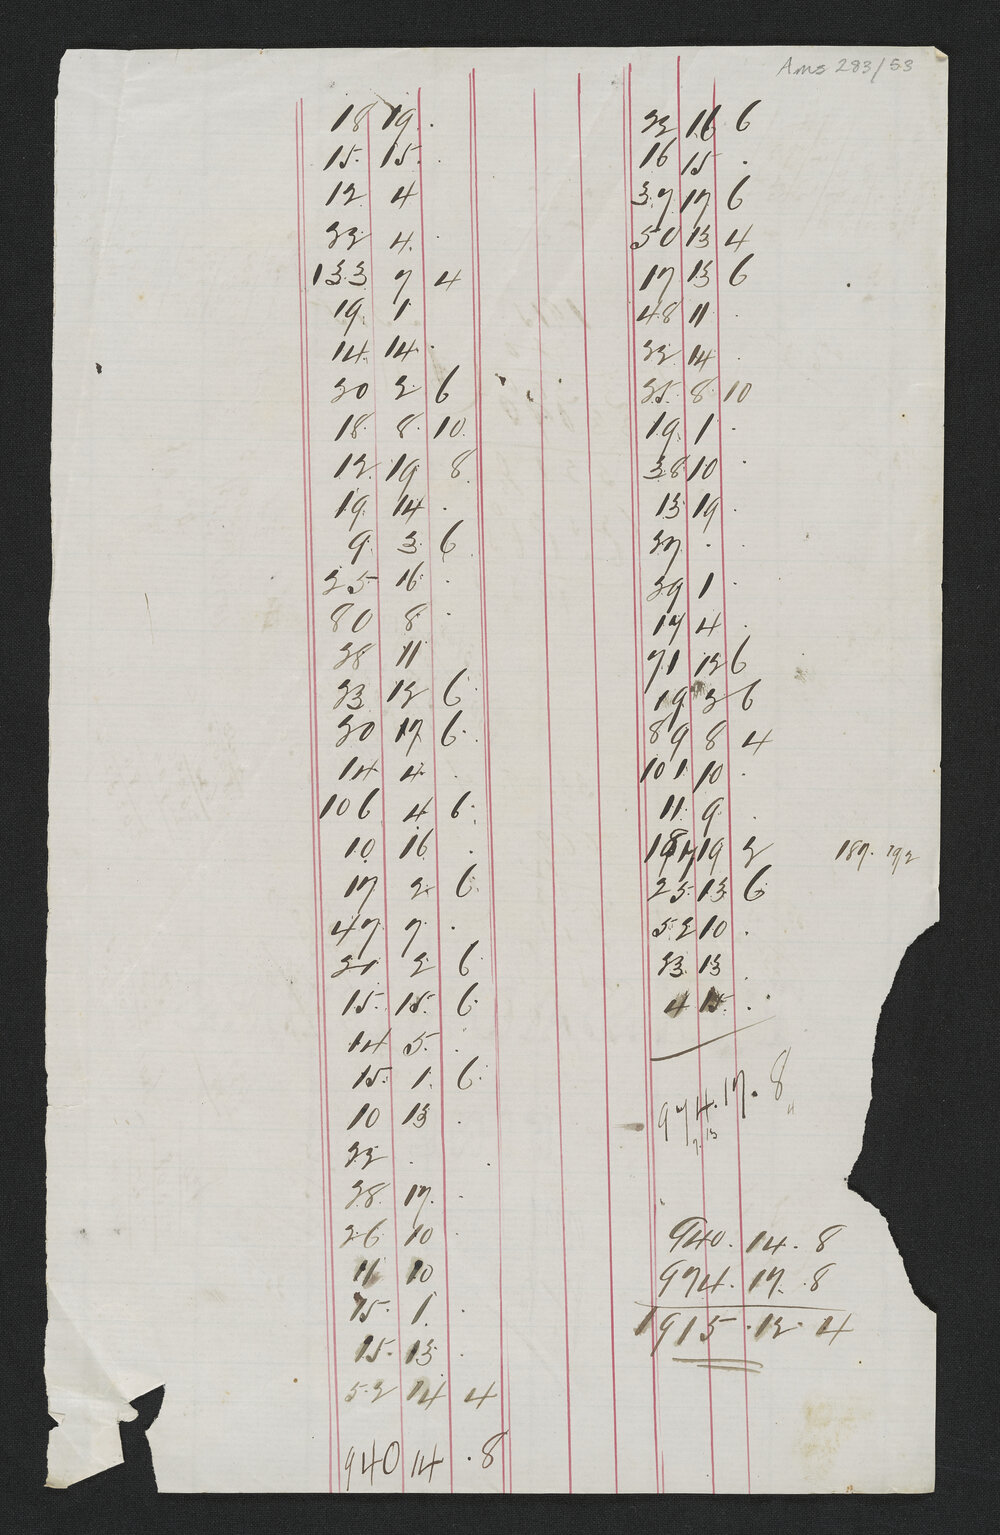 Ams 283/53
18 19 .
15 15 .
12 4
22 4 .
133 7 4
19 1
14 14 .
20 2 6
18 8 10
12 19 8
19 14 .
9 3 6
25 16 .
80 8 .
28 11
23 12 6
20 17 6
14 4 .
106 4 6
10 16 .
17 2 6
47 7 .
21 2 6
15 15 6
14 5 .
15 1 6
10 13 .
22 . .
28 17 .
26 10 .
11 10
15 1 .
15 13 .
52 14 4
940 14 . 8
22 16 6
16 15 .
37 17 6
50 13 4
17 13 6
48 11 .
22 14 .
25 8 10
19 1 .
38 10 .
13 19 .
27 . .
29 1 .
17 4 .
71 12 6
19 2 6
89 8 4
101 10 .
11 9 .
187 19 2 187. 19 2
25 13 6
52 10 .
23 13 .
4 15 .
974 . 17 . 8
7. 13
940 . 14 . 8
974 . 17 . 8
1915 . 12 . 4